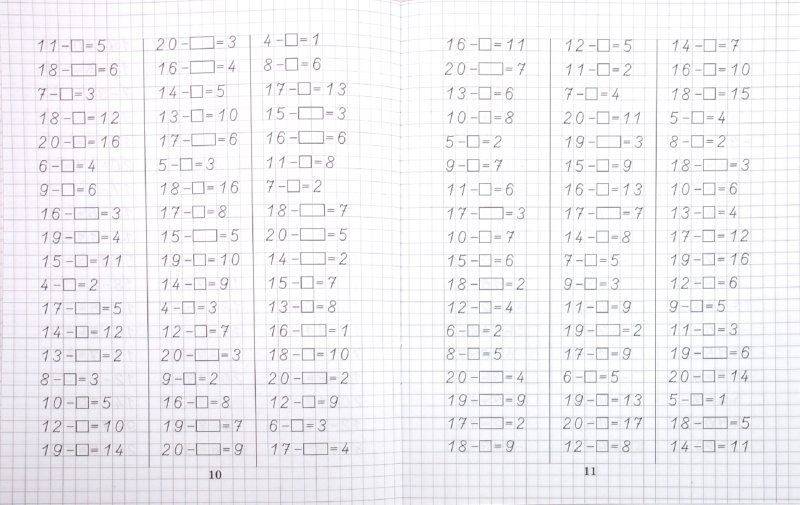 11-□=5
18-□=6
7-□=3
18-□=12
20-□=16
6-□=4
9-□=6
16-□=3
19-□=4
15-□=11
4-□=2
17-□=5
14-□=12
13-□=2
8-□=3
10-□=5
12-□=10
19-□=14
20-□=3
16-□=4
14-□=5
13-□=10
17-□=6
5-□=3
18-□=16
17-□=8
15-□=5
19-□=10
14-□=9
4-□=3
12-□=7
20-□=3
9-□=2
16-□=8
19-□=7
20-□=9
4-□=1
8-□=6
17-□=13
15-□=3
16-□=6
11-□=8
7-□=2
18-□=7
20-□=5
14-□=2
15-□=7
13-□=8
16-□=1
18-□=10
20-□=2
12-□=9
6-□=3
17-□=4
10
16-□=11
20-□=7
13-□=6
10-□=8
5-□=2
9-□=7
11-□=6
17-□=3
10-□=7
15-□=6
18-□=2
12-□=4
6-□=2
8-□=5
20-□=4
19-□=9
17-□=2
18-□=9
12-□=5
11-□=2
7-□=4
20-□=11
19-□=3
15-□=9
16-□=13
17-□=7
14-□=8
7-□=5
9-□=3
11-□=9
19-□=2
17-□=9
6-□=5
19-□=13
20-□=17
12-□=8
14-□=7
16-□=10
18-□=15
5-□=4
8-□=2
18-□=3
10-□=6
13-□=4
17-□=12
19-□=16
12-□=6
9-□=5
11-□=3
19-□=6
20-□=14
5-□=1
18-□=5
14-□=11
11